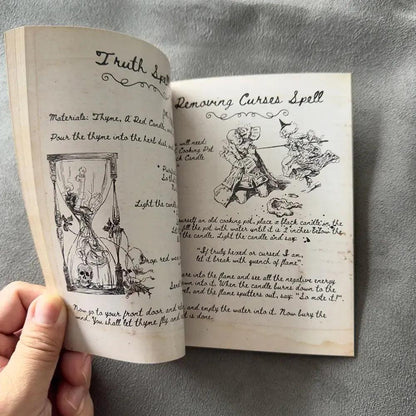 Truth Spel
Materials: Thyme, A Red Candle,
Pour the thyme into the herb dish
Light the
Drop red wa
Now go to your front door and
wind. You shall let thyme fly
Removing Curses Spell
will need:
Cooking Pot
ck Candle
urself an old cooking pot, place a black candle in the
fill the pot with water until it is 2 inches below the
the candle. Light the candle and say:
"If truly hexed or cursed I am,
let it break with quench of flame".
are into the flame and see all the negative energy
into it. When the candle burns down to the
and the flame sputters out, say: "So mote it!".
and empty the water into it. Now bury the
is done.